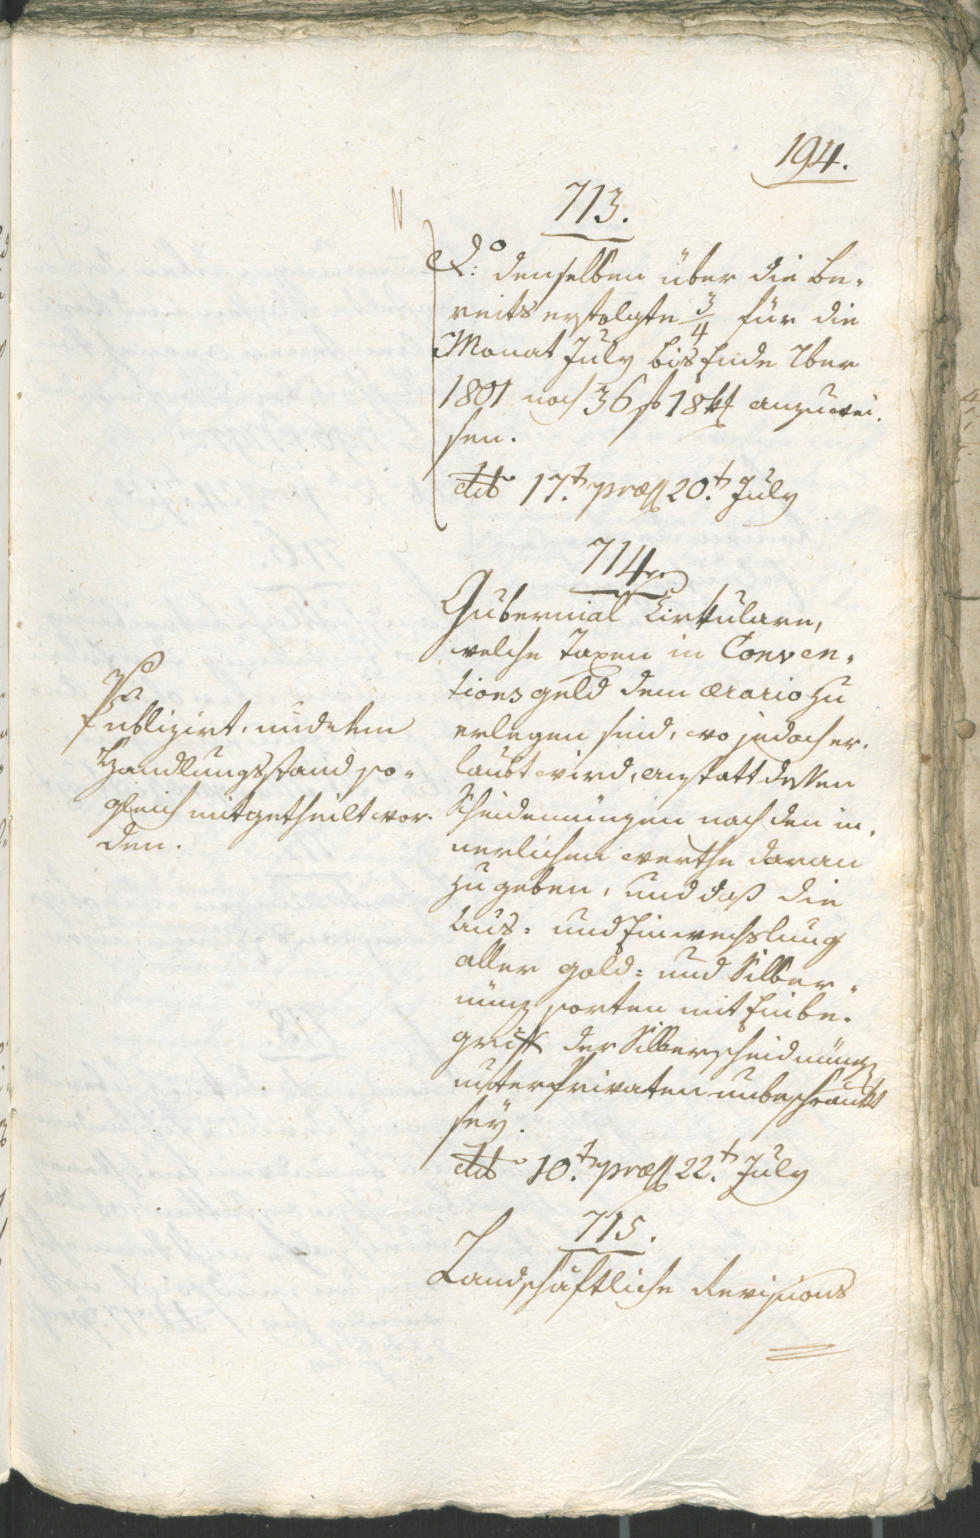 194.
713.
d:o denselben über die be-
reits erfolgte 3/4 für die
Monat July bis Ende 7ber
1801 noch 36 f 18 xr anzuwei-
sen.
dto 17.t præs 20.t July
714.
Gubernial Cirkulare,
welche Taxen in Conven-
tionsgeld dem ærario zu
erlegen sind, wo jedoch er-
laubt wird, anstatt dessen
Scheidemünzen nach den in-
nerlichen werthe daran
zu geben, und daß die
Aus- und Einwechslung
aller gold- und Silber-
münzsorten mit Einbe-
griff der Silberscheidmünz
unter Privaten unbeschränkt
seÿ.
dto 10.t præs 22.t July
Publizirt, und dem
Handlungsstand so-
gleich mitgetheilt wor-
den.
715.
Landschäftliche Revisions